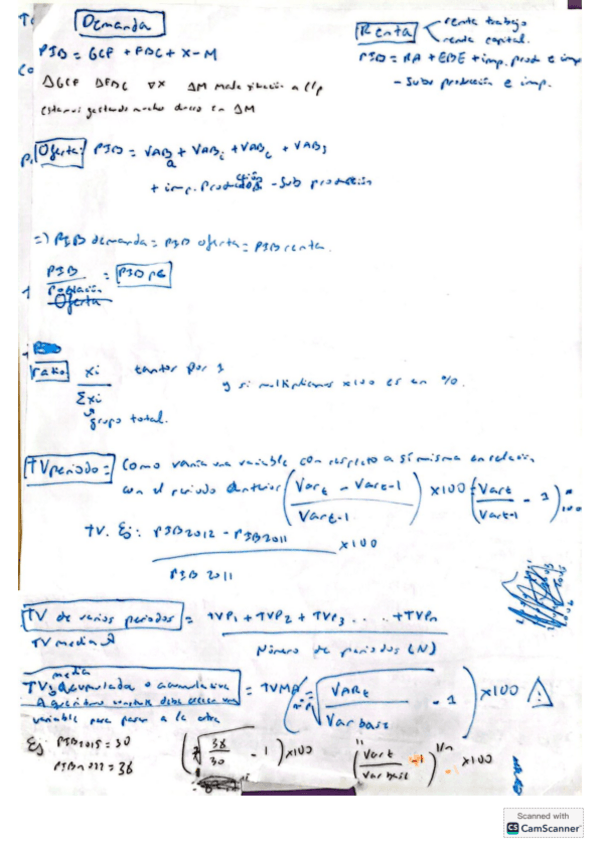 Demanda
PIB = GCF + FBC + X - M
ΔGCF ΔFBC ∇X ΔM mala situación a c/p
Estamos gastando mucho dinero en ΔM
Renta
renta trabajo
renta capital.
PIB = RA + EBE + imp. prod e imp
- Subv producción e imp.
Oferta: PIB = VABa + VABi + VABc + VABs
+ imp. Producción - Sub producción
=> PIB demanda = PIB oferta = PIB renta.
PIB / Población = PIB pc
Oferta
Ratio xi / Σxi tantos por 1 y si multiplicamos x100 es en %.
grupo total.
TV periodo = Como varía una variable con respecto a sí misma en relación
con el periodo anterior (Vart - Vart-1 / Vart-1) x100 = (Vart / Vart-1 - 1) x 100
TV. Ej: PIB2012 - PIB2011 / PIB 2011 x100
TV de varios periodos = TVP1 + TVP2 + TVP3 .... + TVPn / Número de periodos (N)
TV media
TV media acumulada o acumulativa = TVMA = (n√ VARt / Var base - 1) x100 ⚠
variable para pasar a la otra
Ej: PIB2015 = 30
= 36
(7√ 36 / 30 - 1) x100
(Vart / Var base - 1)^1/n x100
Scanned with
CS CamScanner